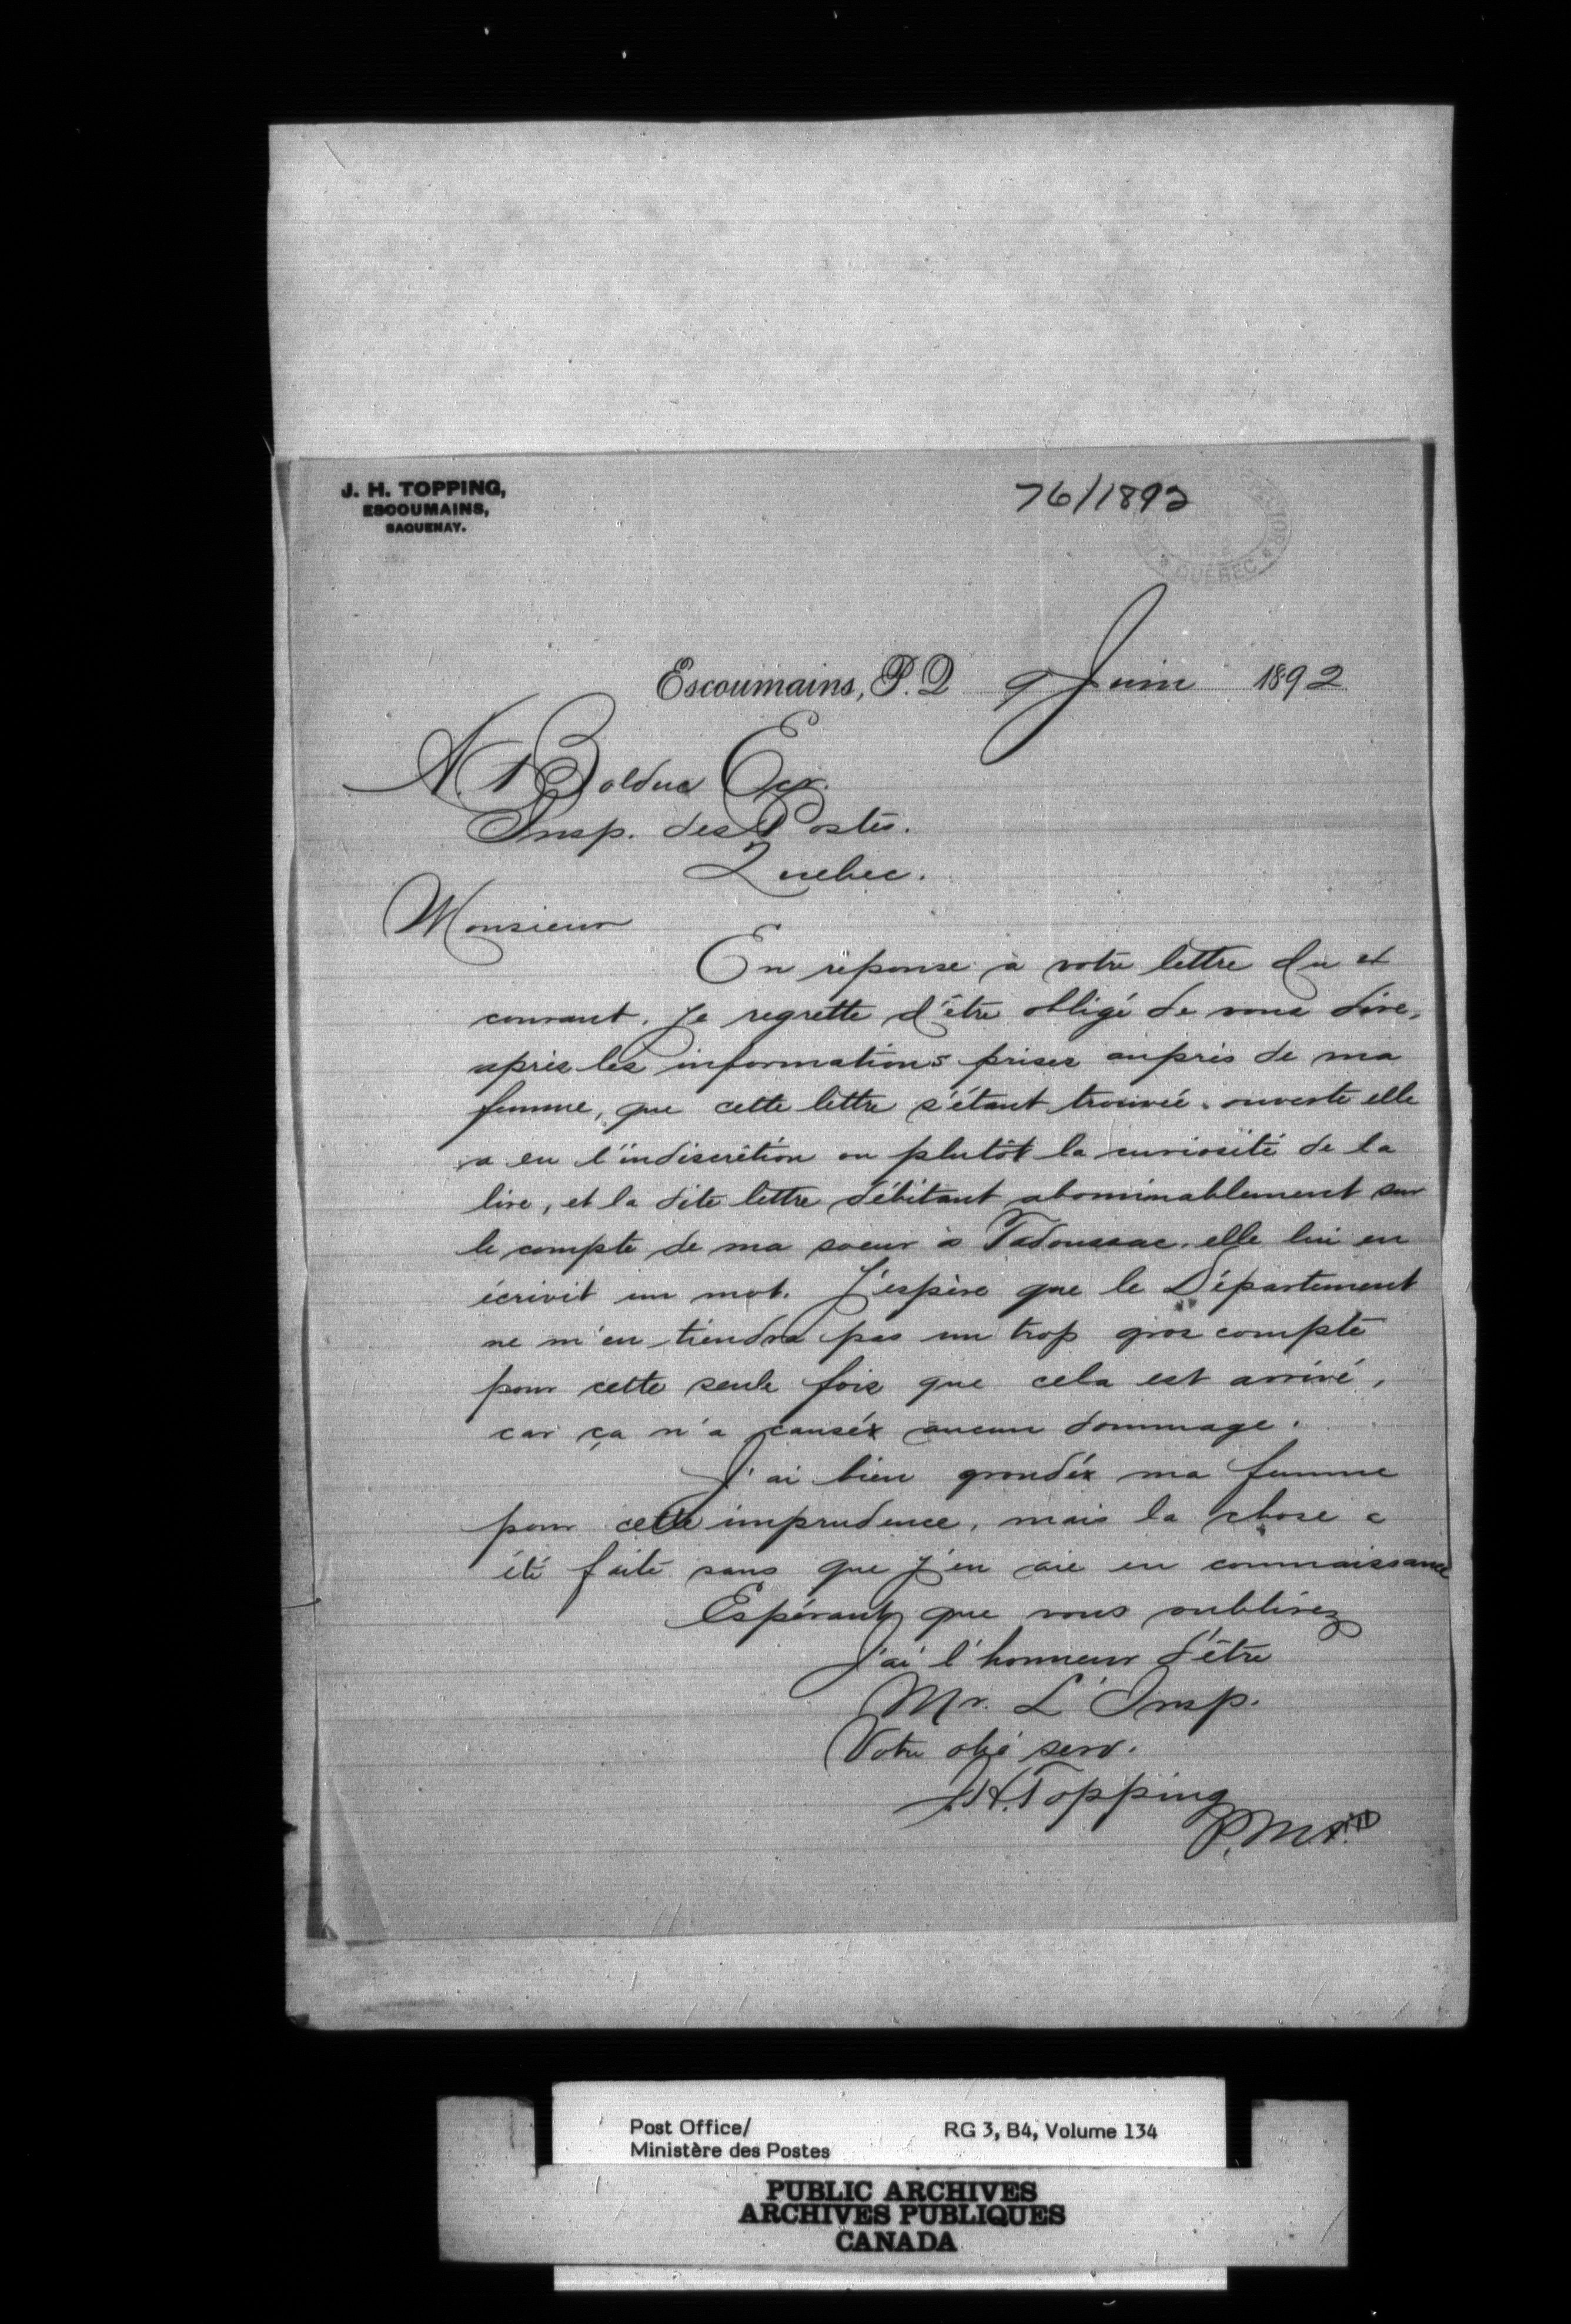 J. H. TOPPING,
ESCOUMAINS,
SAGUENAY.
76/1892
1892
QUEBEC
Escoumains, P. Q 9 Juin 1892
Bolduc Ecr.
Insp. des Postes.
Quebec.
Monsieur
En réponse à votre lettre du
courant. Je regrette d'être obligé de vous dire,
après les informations prises auprès de ma
femme, que cette lettre s'étant trouvée ouverte elle
a eu l'indiscrétion ou plutôt la curiosité de la
lire, et la dite lettre débitant abominablement sur
le compte de ma soeur à Tadoussac. elle lui en
écrivit un mot. J'espère que le Département
ne m'en tiendra pas un trop gros compte
pour cette seule fois que cela est arrivé,
car ça n'a causé aucun dommage.
J'ai bien grondé ma femme
pour cette imprudence, mais la chose a
été faite sans que j'en aie eu connaissance
Espérant que vous oublirez
J'ai l'honneur d'être
Mr. L'Insp.
Votre obé serv.
J.H. Topping
P.M.
Post Office/
Ministère des Postes
RG 3, B4, Volume 134
PUBLIC ARCHIVES
ARCHIVES PUBLIQUES
CANADA